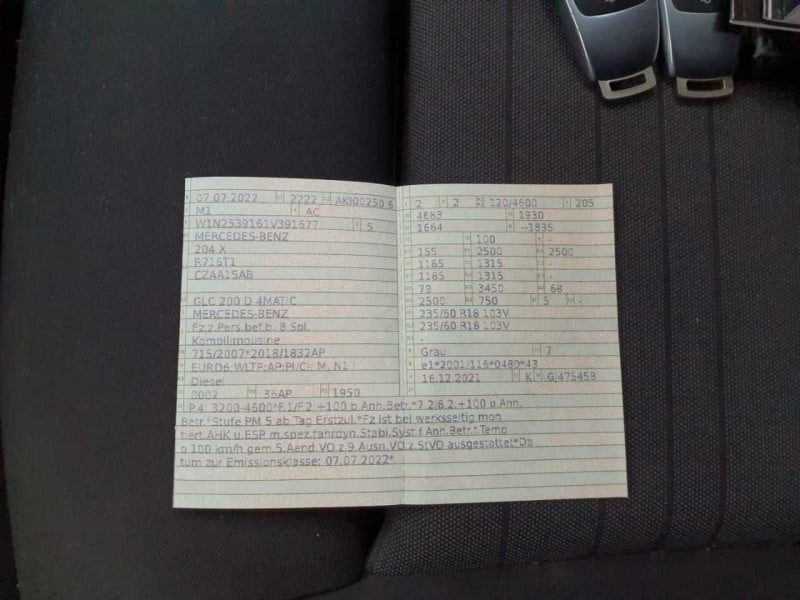 07.07.2022 2222 AKI00250 6
M1 AC
W1N2539161V391677 5
MERCEDES-BENZ
204 X
R716T1
CZAA15AB
GLC 200 D 4MATIC
MERCEDES-BENZ
Fz.z.Pers.bef.b. 8 Spl.
Kombilimousine
715/2007*2018/1832AP
EURO6 WLTP;AP;PI/CI; M, N1 I
Diesel
0002 36AP 1950
2 2 120/4600 205
4683 1930
1664 --1835
100 -
155 2500 2500
1185 1315 -
1185 1315 -
79 3450 68
2500 750 5 -
235/60 R18 103V
235/60 R18 103V
-
Grau 7
e1*2001/116*0480*43
16.12.2021 K GJ475458
P.4: 3200-4600*F.1/F.2: +100 b.Anh.Betr.*7.2/8.2:+100 b.Anh.
Betr.*Stufe PM 5 ab Tag Erstzul.*Fz ist bei werksseitig mon
tiert.AHK u.ESP m.spez.fahrdyn.Stabi.Syst.f.Anh.Betr.f.Temp
o 100 km/h gem.5.Aend.VO.z.9.Ausn.VO.z.StVO ausgestattet*Da
tum zur Emissionsklasse: 07.07.2022*